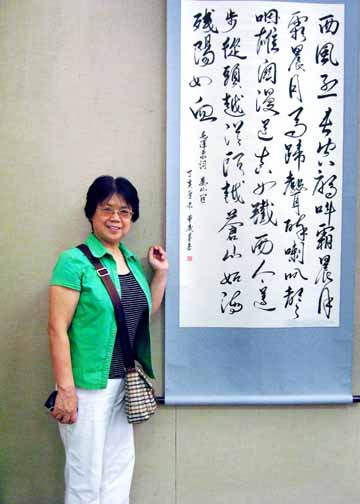 西風烈長空雁叫霜晨月
霜晨月馬蹄聲碎喇叭聲
咽雄關漫道真如鐵而今邁
步從頭越從頭越蒼山如海
殘陽如血
毛澤東詞 婁山關
丁亥